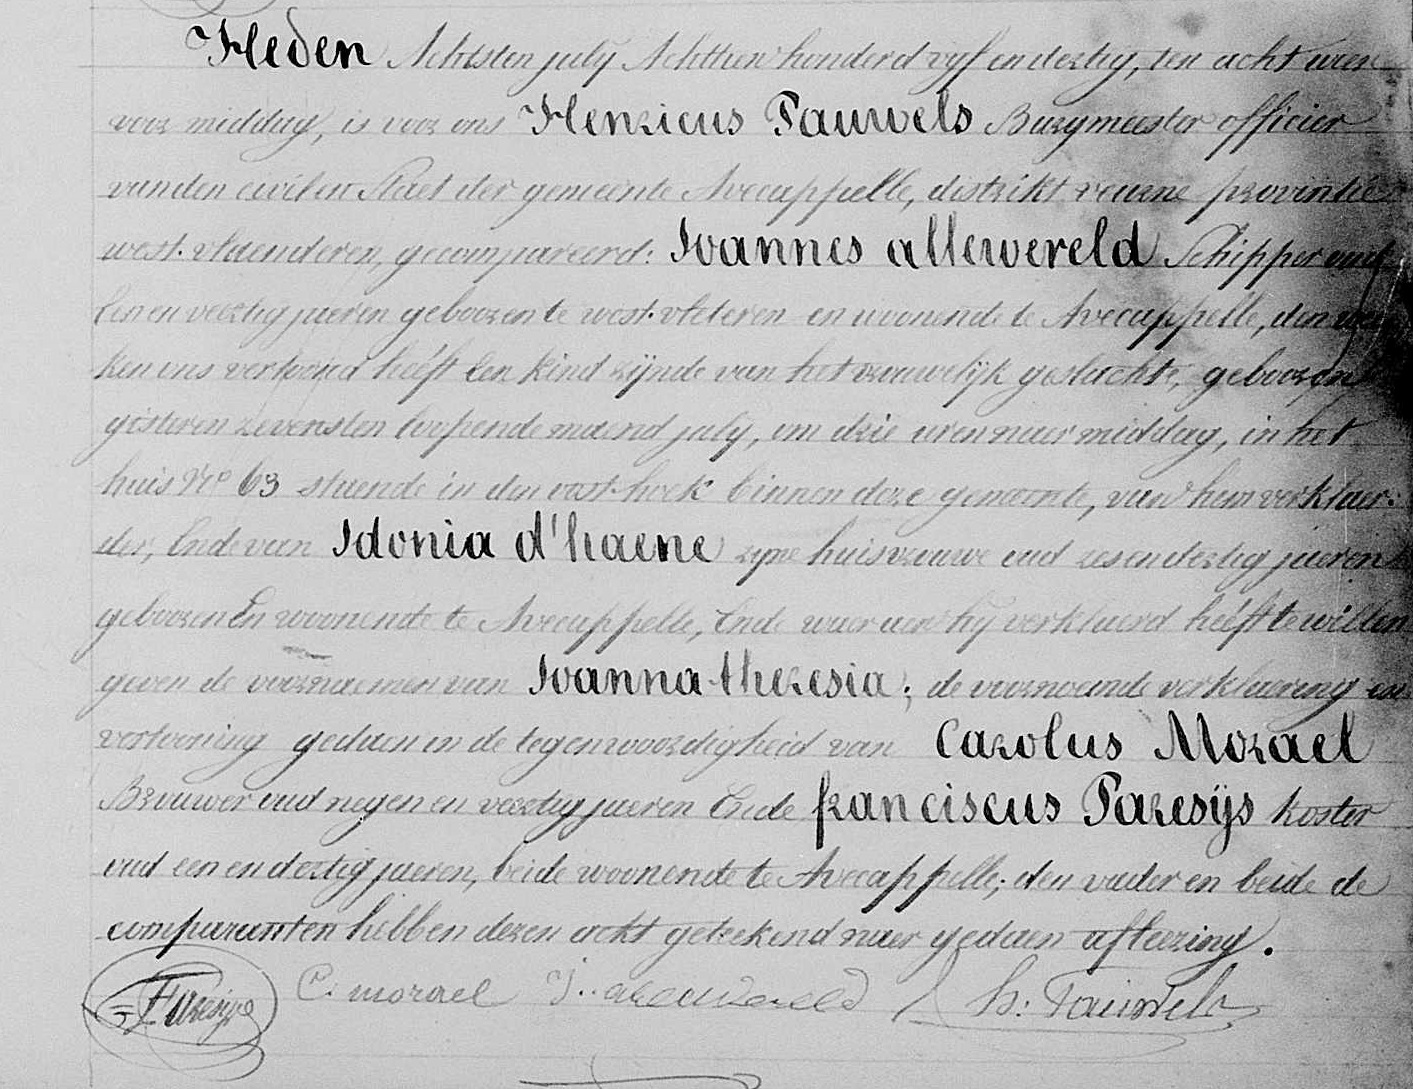 Heden Achtsten july Achthien honderd vyf en dertig, ten acht uren
voor middag, is voor ons Henricus Pauwels Burgmeester officier
vanden civilen Staet der gemeente Avecappelle, distrikt veurne provintie
west-vlaenderen, gecompareerd: Ioannes allewereld Schipper oud
Een en veertig jaeren geboozen te west-vleteren en woonende te Avecappelle, den
ken ons vertoond heéft Een kind zijnde van het vrouwelijk geslacht, geboozen
gisteren zevensten loopende maend july, om drie uren naer middag, in het
huis No 63 staende in den oost-hoek binnen deze gemeente, van hem verklaer-
der, Ende van Idonia d'haene zyne huisvrouwe oud zes en dertig jaeren
geboozen En woonende te Avecappelle, Ende waer aen hij verklaerd heéft te willen
geven de voornaemen van Ioanna-theresia; de voornoemde verklaering en
vertooning gedaen in de tegenwoordigheid van Carolus Morael
Brouwer oud negen en veertig jaeren Ende franciscus Paresÿs koster
oud een en dertig jaeren, beide woonende te Avecappelle; den vader en beide de
comparanten hebben dezen ackt geteekend naer gedaen afleezing.
F Paresys C. morael J. allewereld h: Pauwels